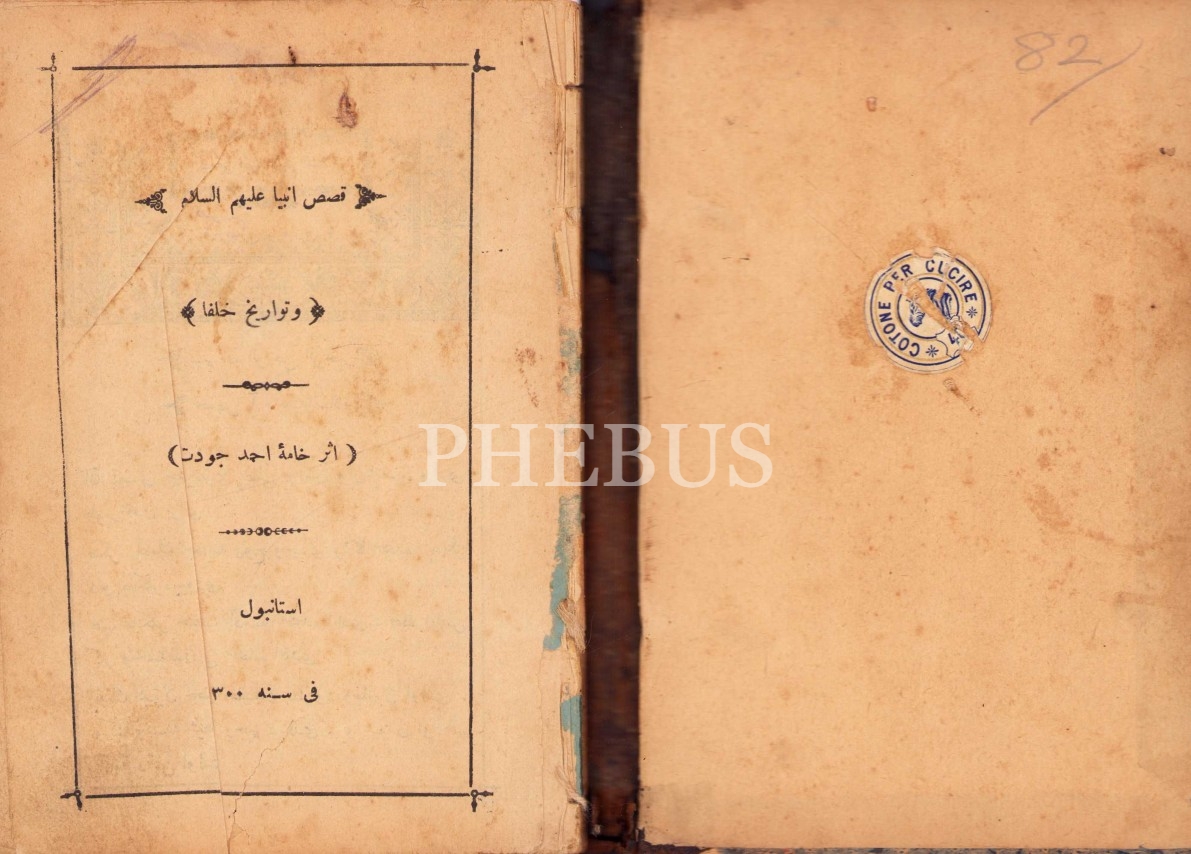 قصص انبيا عليهم السلام
﴿ وتواريخ خلفا ﴾
( اثر خامهٔ احمد جودت )
استانبول
فى سنه ٣٠٠
82
COTONE PER CUCIRE
PHEBUS